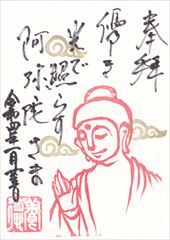 奉拝
儚き
光で照らす
阿弥陀さま
令和四年一月吉日